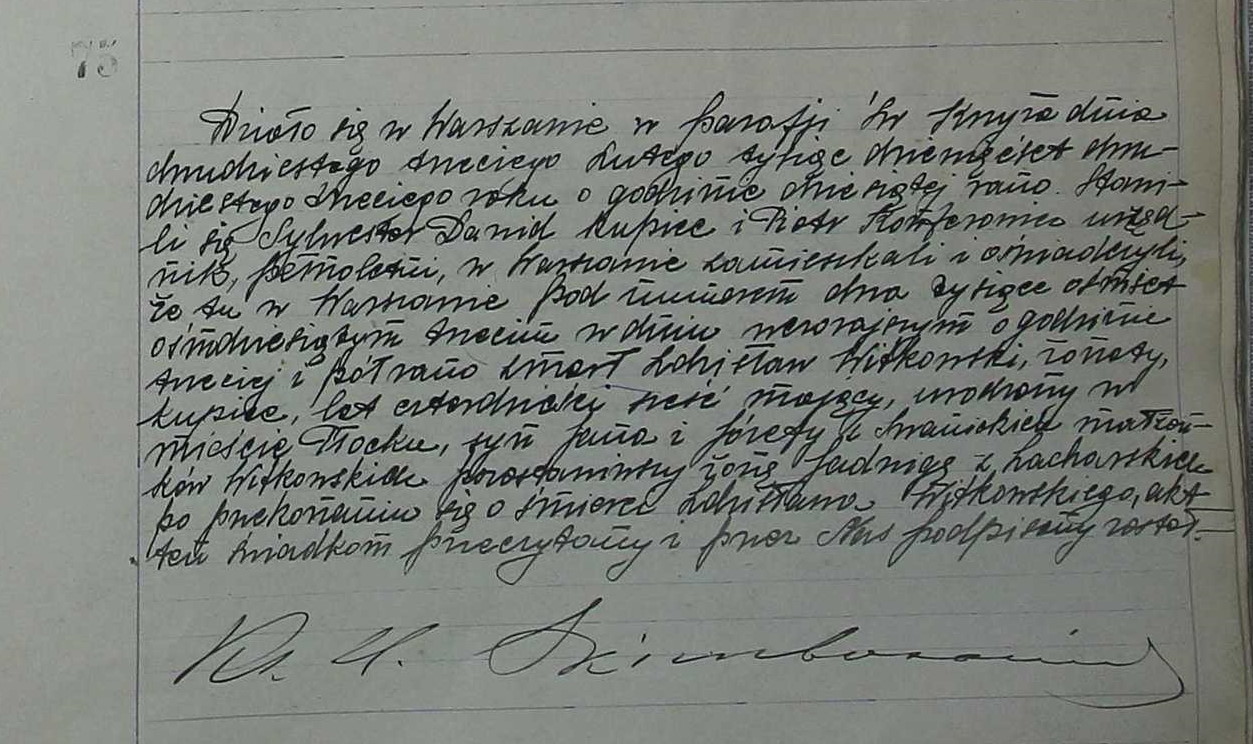 75
Działo się w Warszawie w parafji Św Krzyża dnia
dwudziestego trzeciego Lutego tysiąc dziewięćset dwu-
dziestego trzeciego roku o godzinie dziesiątej rano. Stawi-
li się Sylwester Danid kupiec i Piotr urzęd-
nik, pełnoletni, w Warszawie zamieszkali i oświadczyli,
że tu w Warszawie pod numerem dwa tysiące ośmset
ośmdziesiątym trzecim w dniu wczorajszym o godzinie
trzeciej i pół rano zmarł Zdzisław Witkowski, żonaty,
kupiec, lat czterdzieści sześć mający, urodzony w
mieście Płocku, syn Jana i Józefy z Iwanickich małżon-
ków Witkowskich pozostawiwszy żonę Jadwigę z Zacharskich
po przekonaniu się o śmierci Zdzisława Witkowskiego, akt
ten świadkom przeczytany i przez Nas podpisany został.
Ks.